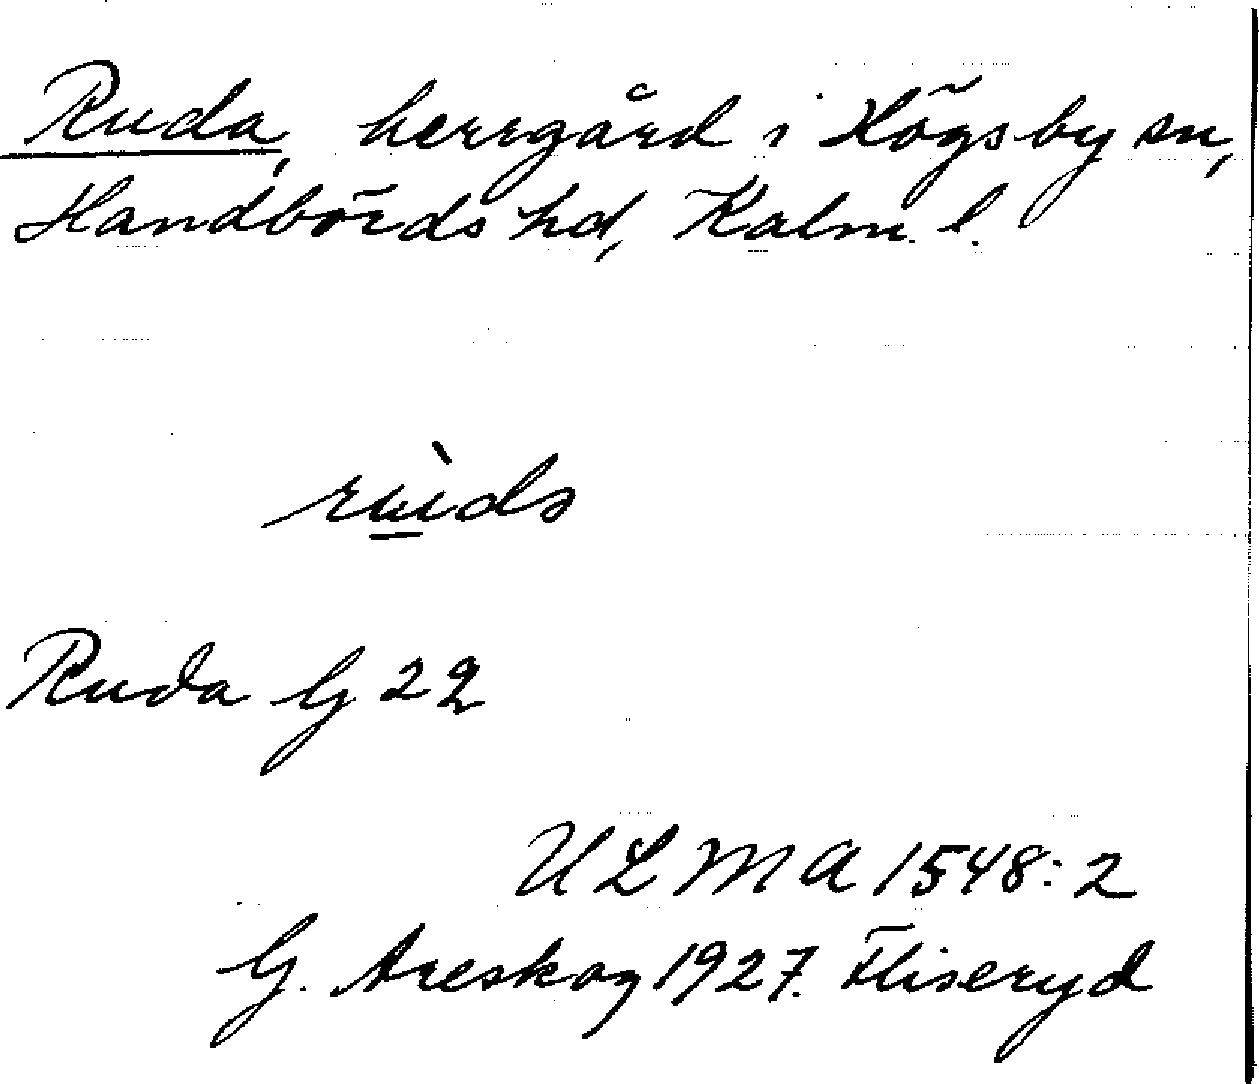 Ruda, herrgård i Högsby sn,
Handbörds hd, Kalm. l.
rùds
Ruda G 22
ULMA 1548:2
G. Areskog 1927. Fliseryd